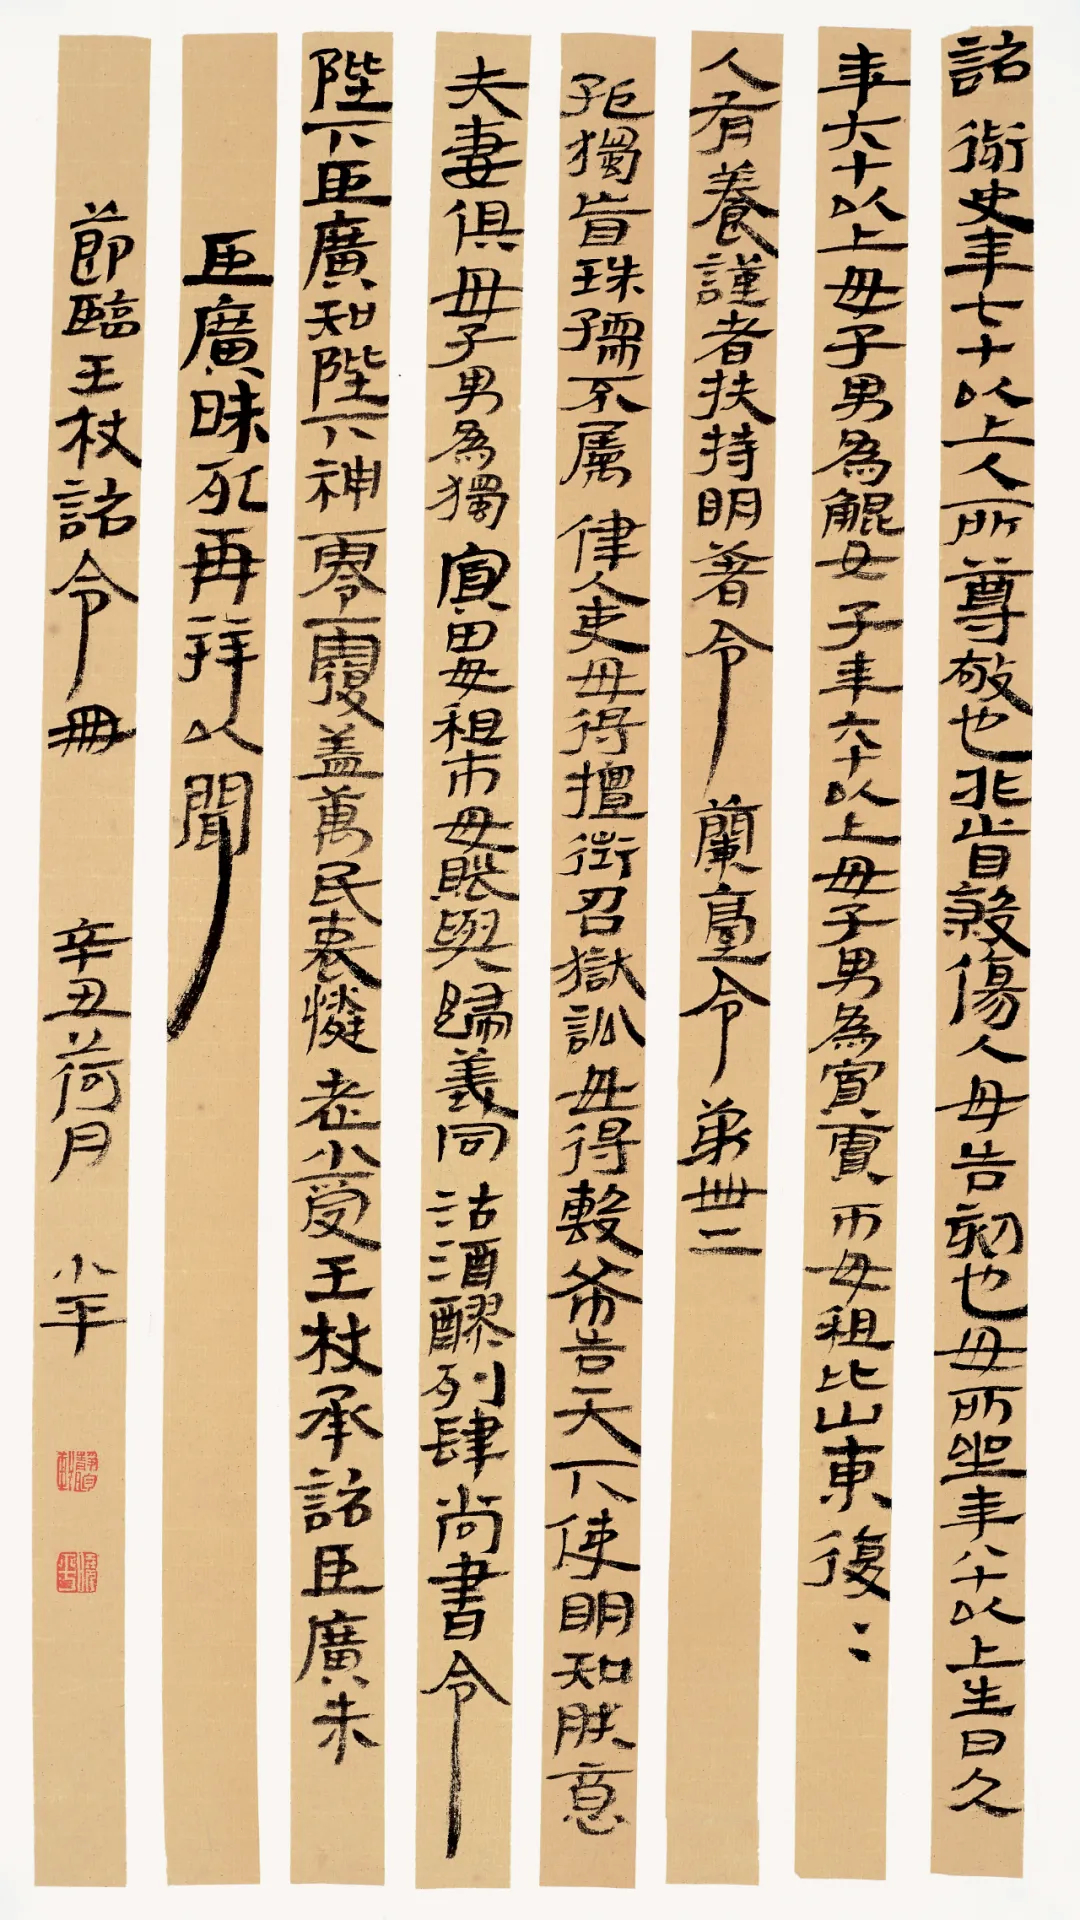 詔 御史年七十以上人所尊敬也非首殺傷人毋告劾也毋所坐年八十以上生日久
年六十以上毋子男為鯤女子年六十以上毋子男為寡賈市毋租比山東復〻
人有養謹者扶持明著令 蘭臺令 第卌二
孤獨盲珠孺不屬 律人吏毋得擅徵召獄訟毋得毄布告天下使明知朕意
夫妻俱毋子男為獨寡田毋租市毋賦與歸義同 沽酒醪列肆尚書令
陛下臣廣知陛下神零覆蓋萬民哀憐老小受王杖承詔臣廣未
臣廣昧死再拜以聞
節臨王杖詔令冊 辛丑荷月 小平